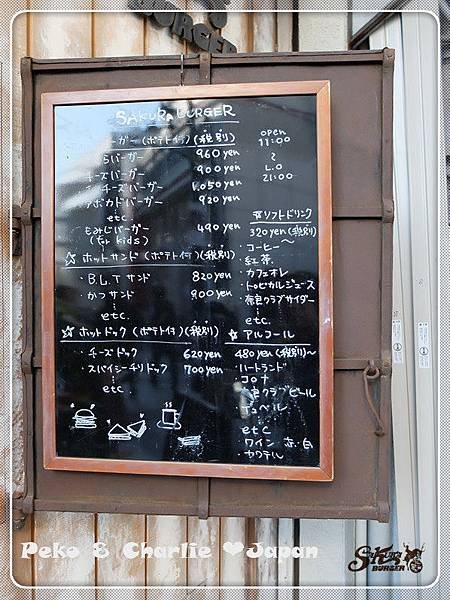 BURGER
SAKURA BURGER
ーガー (ポテト付) (税別)
らバーガー 960yen
チーズバーガー 900yen
チーズバーガー 1,050yen
アボカドバーガー 920yen
etc.
もみじバーガー 490yen
(for kids)
☆ ホットサンド (ポテト付) (税別)
・B.L.T サンド 820yen
・かつサンド 900yen
etc.
☆ ホットドック (ポテト付) (税別)
・チーズドック 620yen
・スパイシーチリドック 700yen
etc.
open
11:00
~
L.O
21:00
ソフトドリンク
320yen (税別)~
・コーヒー
・紅茶
・カフェオレ
・トロピカルジュース
・奈良クラブサイダー
etc.
☆ アルコール
480yen (税別)~
・ハートランド
・コロナ
奈良クラブビール
etc
・ワイン 赤・白
・カクテル
Peko & Charlie ♥ Japan
SAKURA
BURGER